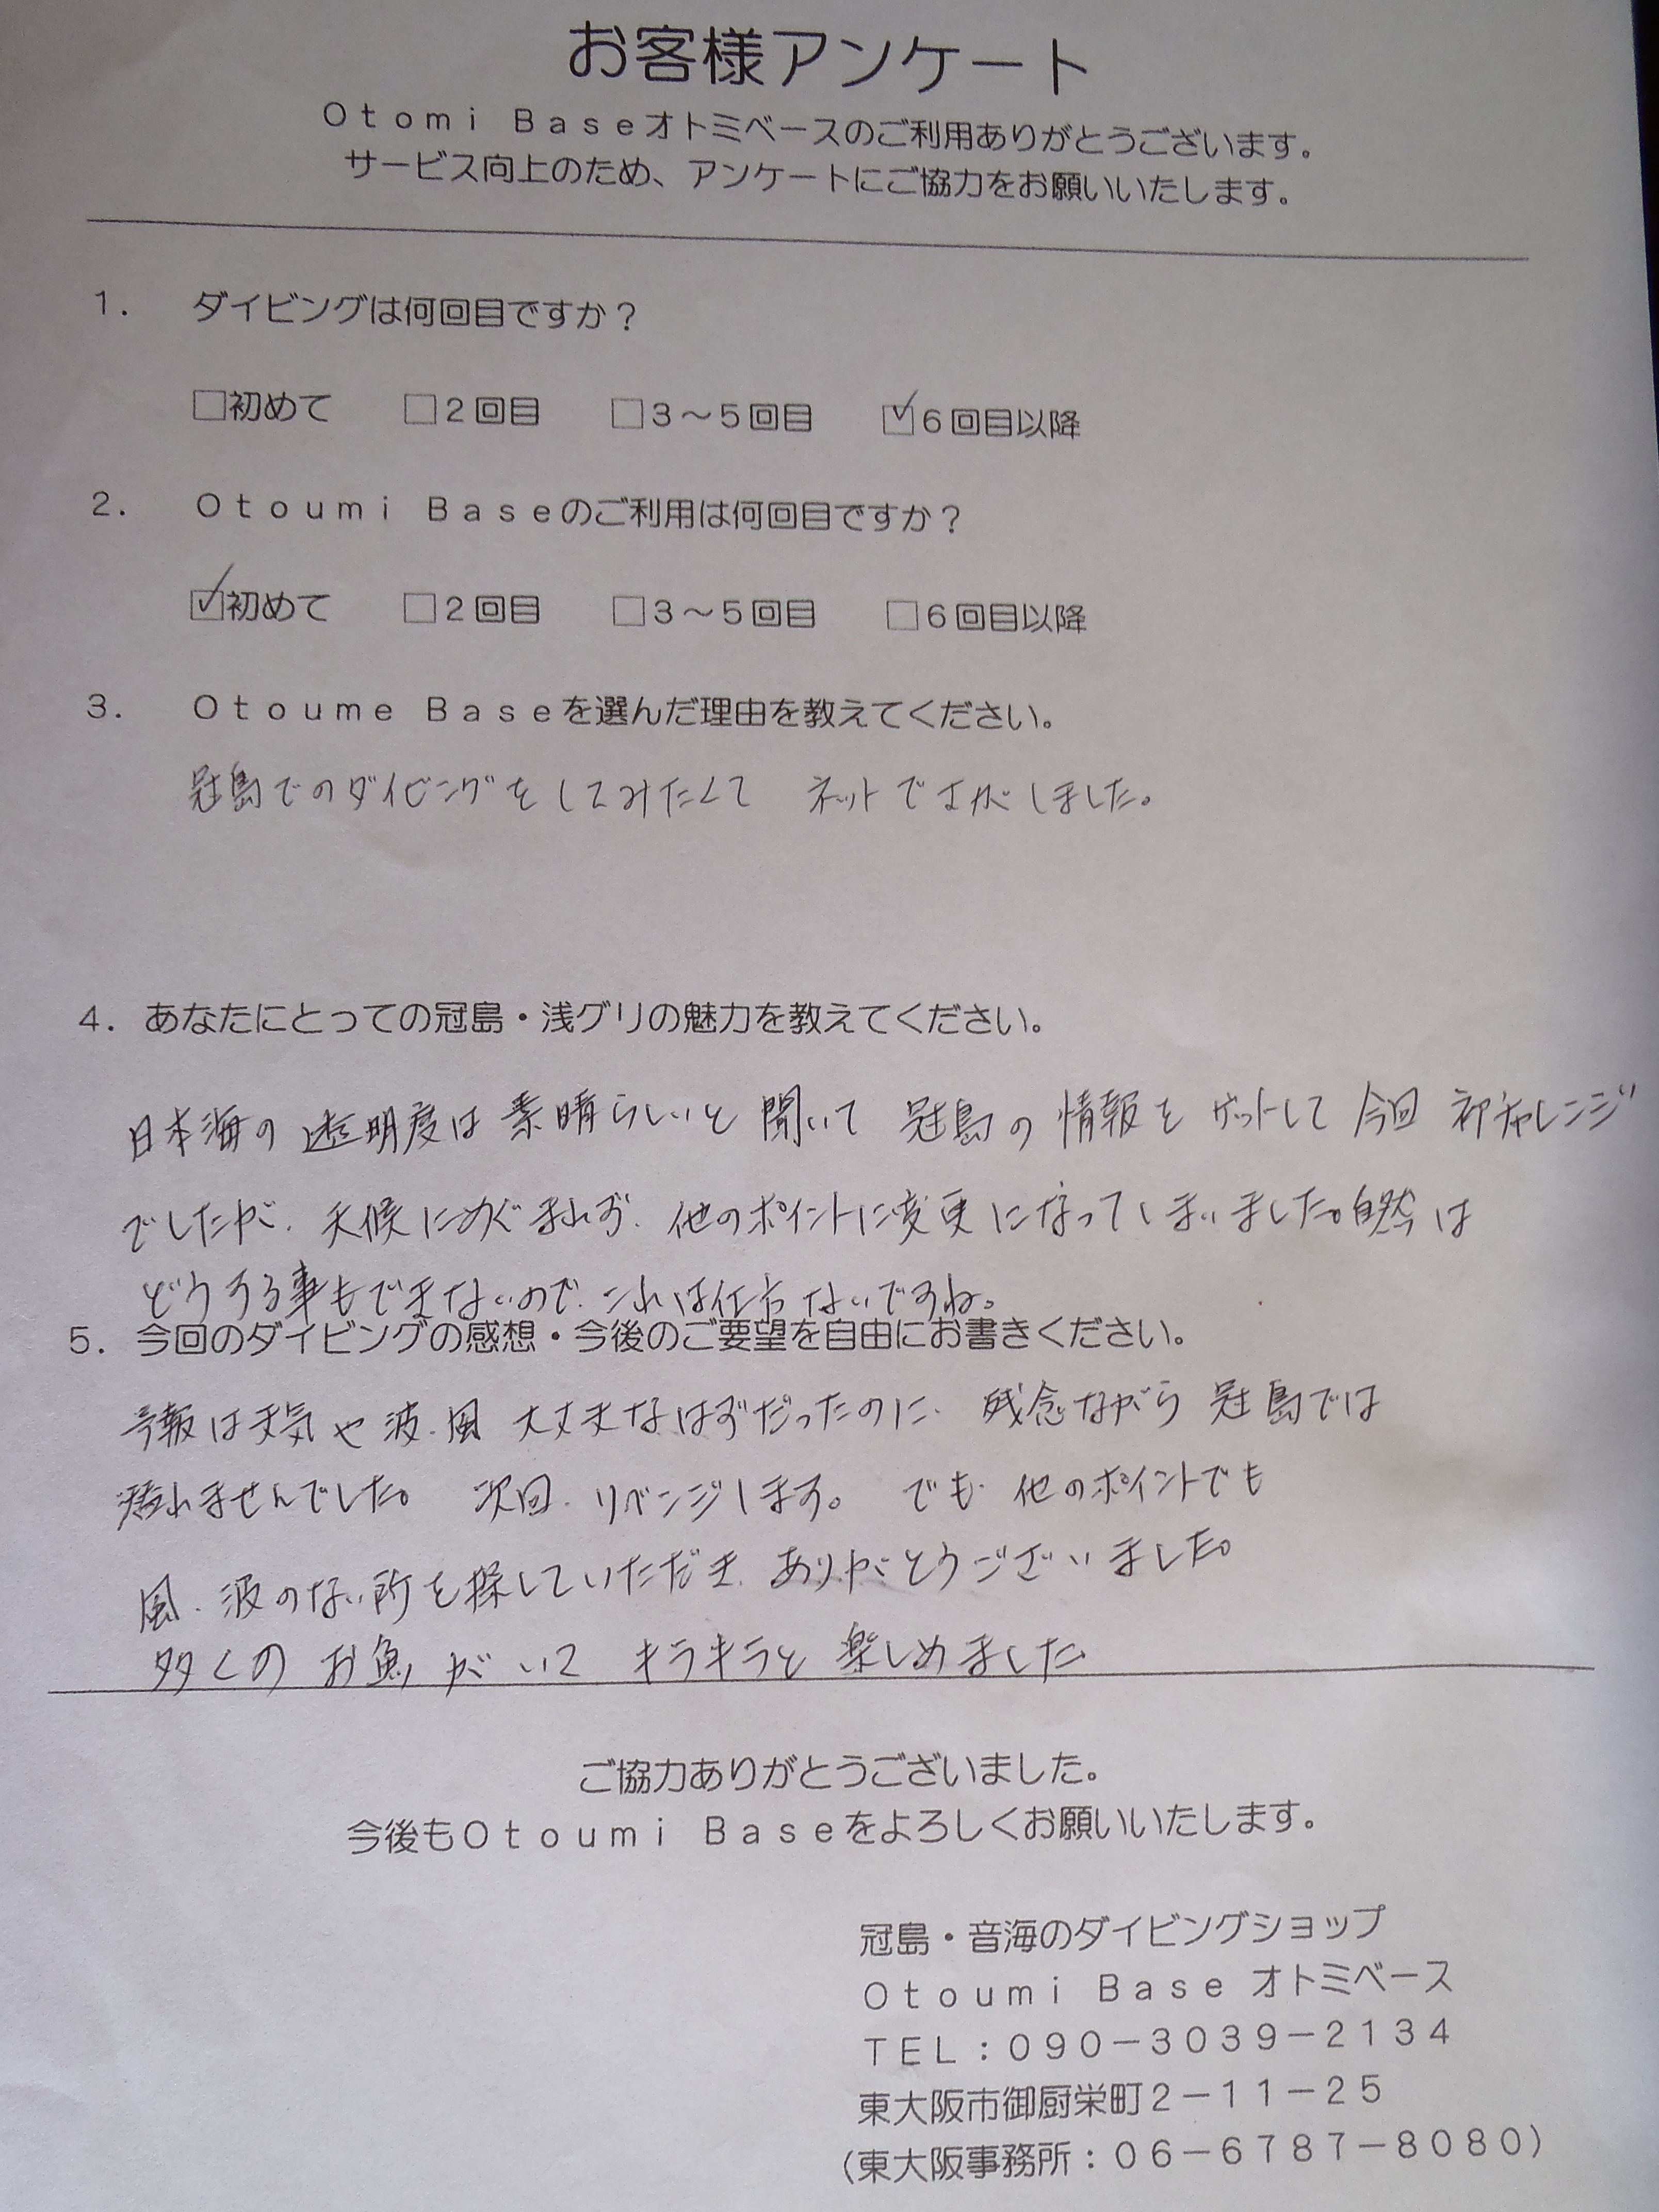 お客様アンケート
Otomi Baseオトミベースのご利用ありがとうございます。
サービス向上のため、アンケートにご協力をお願いいたします。
1. ダイビングは何回目ですか？
□初めて □2回目 □3～5回目 ☑6回目以降
2. Otoumi Baseのご利用は何回目ですか？
☑初めて □2回目 □3～5回目 □6回目以降
3. Otoume Baseを選んだ理由を教えてください。
冠島でのダイビングをしてみたくて ネットでさがしました。
4. あなたにとっての冠島・浅グリの魅力を教えてください。
日本海の透明度は素晴らしいと聞いて 冠島の情報をゲットして 今回 初チャレンジ
でしたが、天候にめぐまれず、他のポイントに変更になってしまいました。自然は
どうする事もできないので、これは仕方ないですね。
5. 今回のダイビングの感想・今後のご要望を自由にお書きください。
予報は天気や波、風 大丈夫なはずだったのに、残念ながら 冠島では
潜れませんでした。 次回、リベンジします。 でも、他のポイントでも
風、波のない所を探していただき、ありがとうございました。
多くの お魚が いて キラキラと 楽しめました
ご協力ありがとうございました。
今後もOtoumi Baseをよろしくお願いいたします。
冠島・音海のダイビングショップ
Otoumi Base オトミベース
TEL：090－3039－2134
東大阪市御厨栄町2－11－25
（東大阪事務所：06－6787－8080）